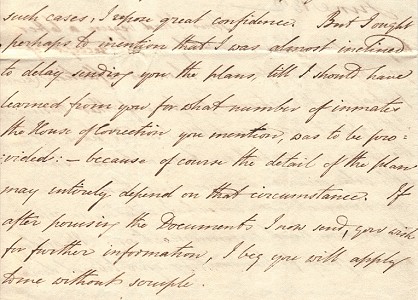 such cases, I repose great confidence. But I ought
perhaps to mention that I was almost inclined
to delay sending you the plans, till I should have
learned from you for what number of inmates
the House of Correction you mention, was to be pro-
vided: – because of course the detail of the plan
may entirely depend on that circumstance. If
after perusing the Documents I now send, you wish
for further information, I beg you will apply
to me without scruple.